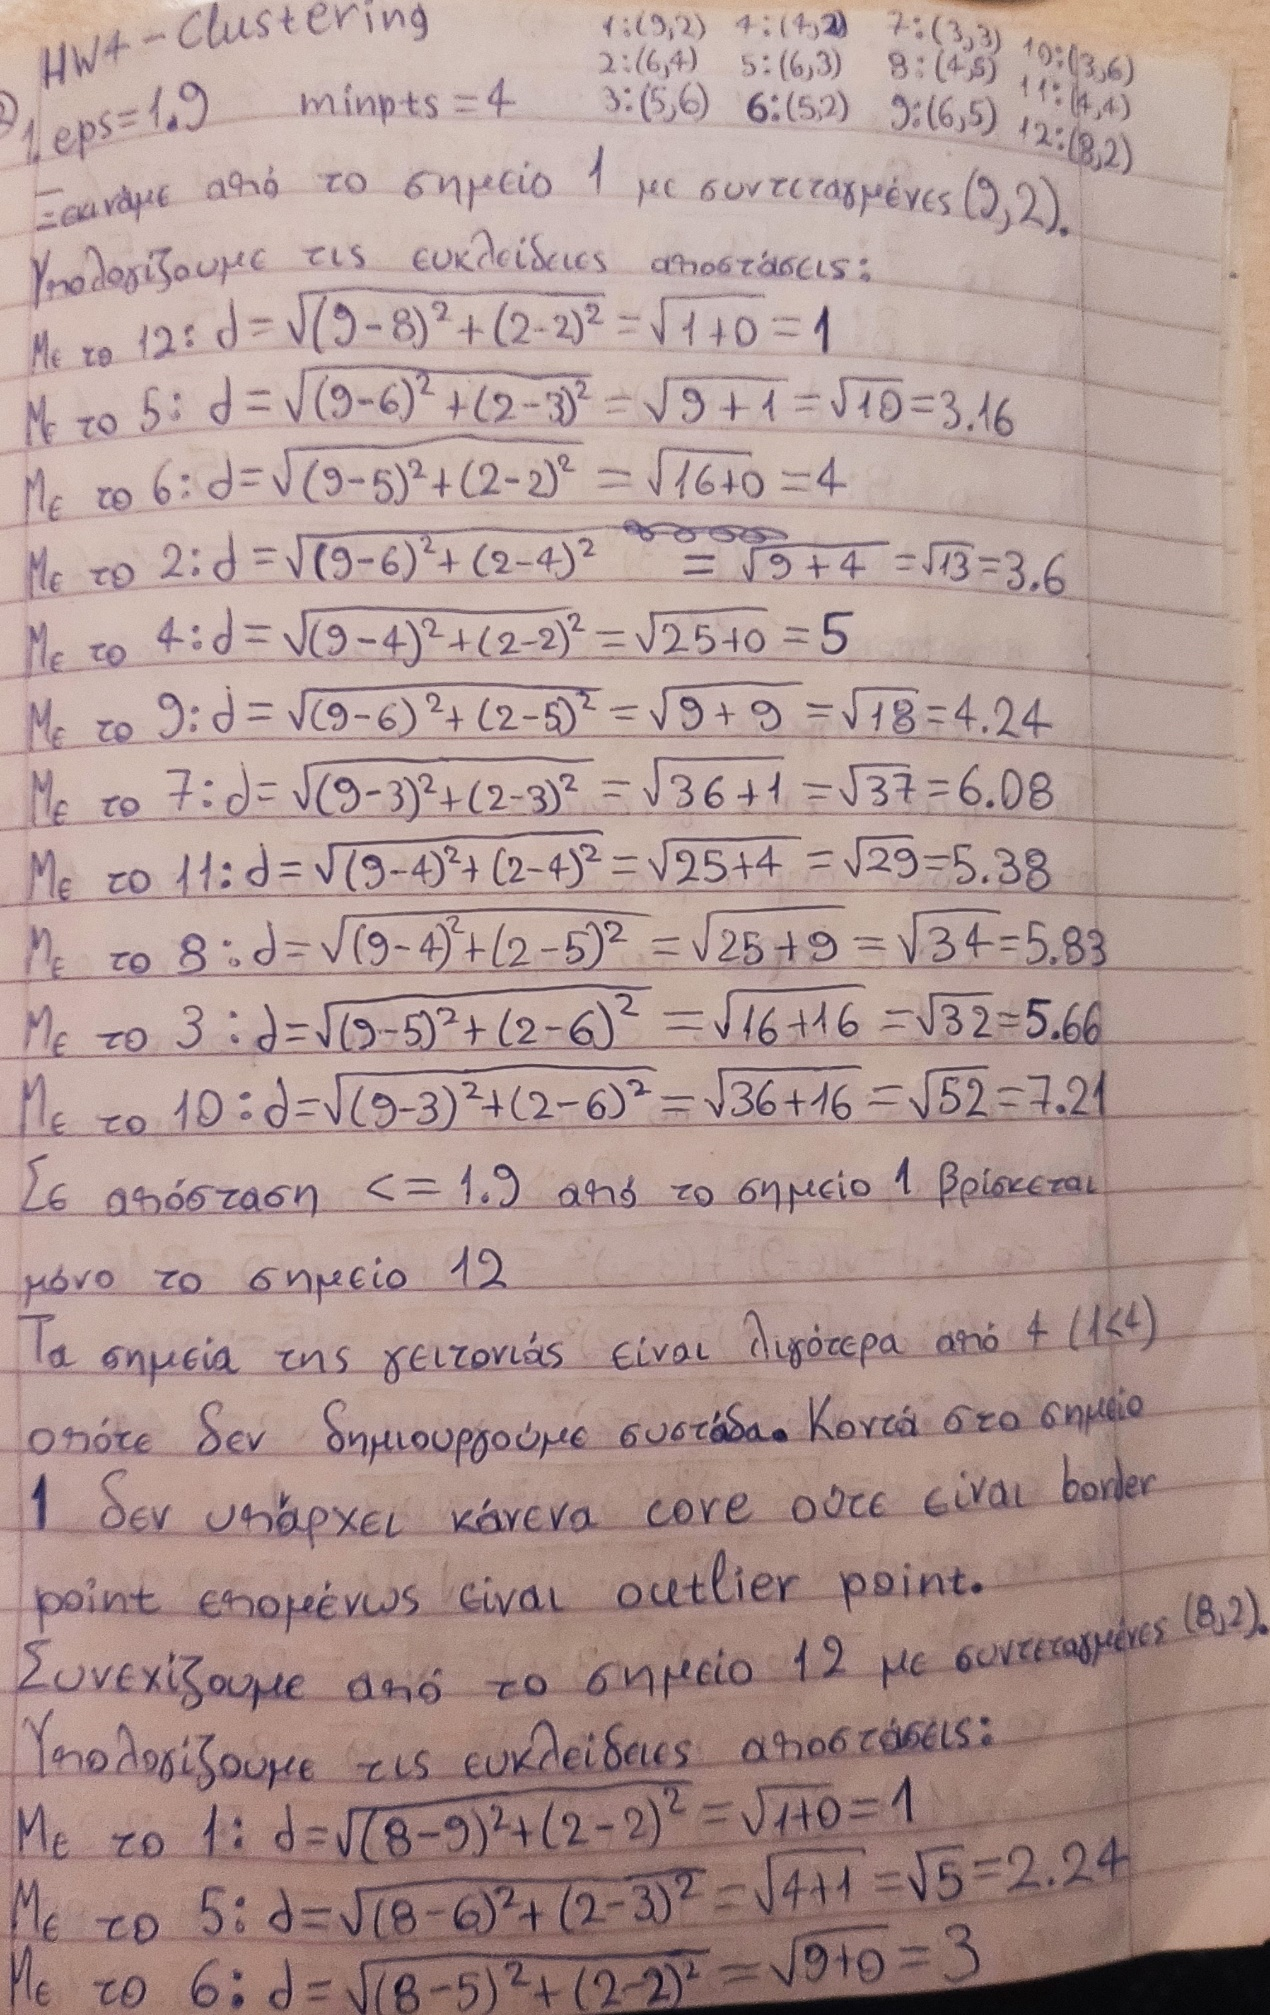 HW4-Clustering
1:(9,2) 4:(4,2) 7:(3,3) 10:(3,6)
2:(6,4) 5:(6,3) 8:(4,5) 11:(4,4)
3:(5,6) 6:(5,2) 9:(6,5) 12:(8,2)
1. eps=1.9 minpts=4
Ξεκινάμε από το σημείο 1 με συντεταγμένες (9,2).
Υπολογίζουμε τις ευκλείδειες αποστάσεις:
Με το 12: d=√(9-8)²+(2-2)² =√1+0 =1
Με το 5: d=√(9-6)²+(2-3)² =√9+1 =√10=3.16
Με το 6: d=√(9-5)²+(2-2)² =√16+0 =4
Με το 2: d=√(9-6)²+(2-4)² =√9+4 =√13=3.6
Με το 4: d=√(9-4)²+(2-2)² =√25+0 =5
Με το 9: d=√(9-6)²+(2-5)² =√9+9 =√18=4.24
Με το 7: d=√(9-3)²+(2-3)² =√36+1 =√37=6.08
Με το 11: d=√(9-4)²+(2-4)² =√25+4 =√29=5.38
Με το 8: d=√(9-4)²+(2-5)² =√25+9 =√34=5.83
Με το 3: d=√(9-5)²+(2-6)² =√16+16 =√32=5.66
Με το 10: d=√(9-3)²+(2-6)² =√36+16 =√52=7.21
Σε απόσταση <=1.9 από το σημείο 1 βρίσκεται
μόνο το σημείο 12
Τα σημεία της γειτονιάς είναι λιγότερα από 4 (1<4)
οπότε δεν δημιουργούμε συστάδα. Κοντά στο σημείο
1 δεν υπάρχει κάνενα core ούτε είναι border
point επομένως είναι outlier point.
Συνεχίζουμε από το σημείο 12 με συντεταγμένες (8,2).
Υπολογίζουμε τις ευκλείδειες αποστάσεις:
Με το 1: d=√(8-9)²+(2-2)² =√1+0=1
Με το 5: d=√(8-6)²+(2-3)² =√4+1 =√5=2.24
Με το 6: d=√(8-5)²+(2-2)² =√9+0=3